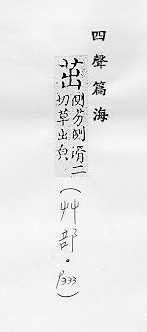 四聲篇海
茁 側劣側滑二
切草出皃
(艸部。P333)